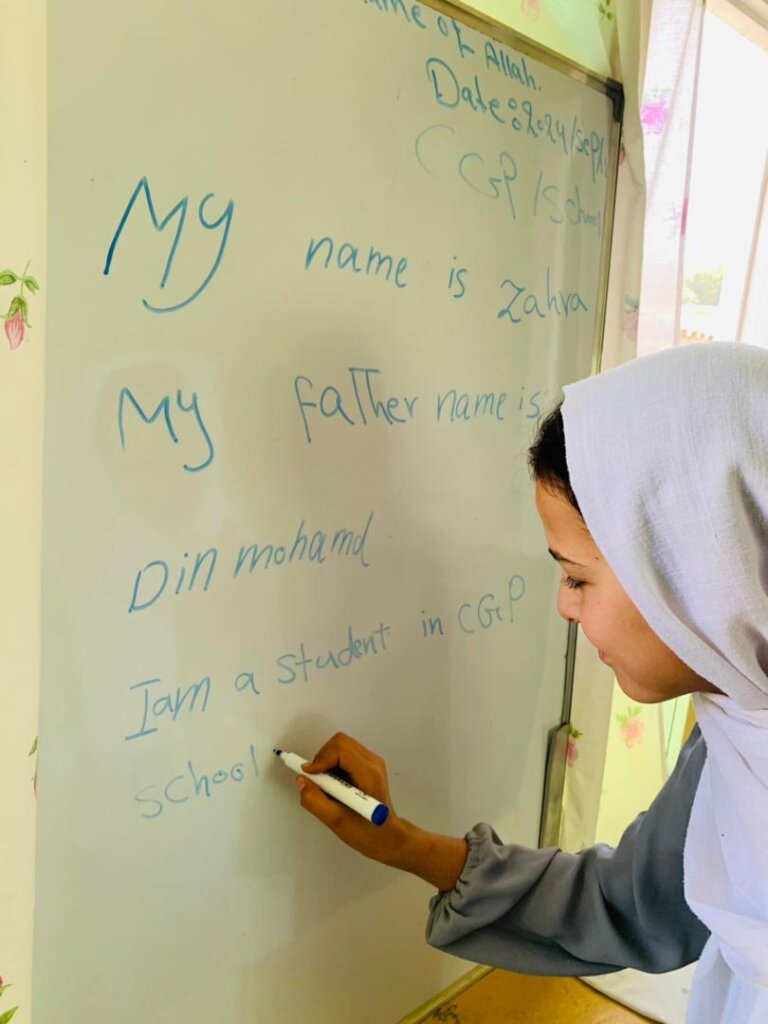 name of Allah.
Date: 2024/sep/
CGP/School
My name is Zahra
My faTher name is
Din mohamd
I am a student in CGP
school